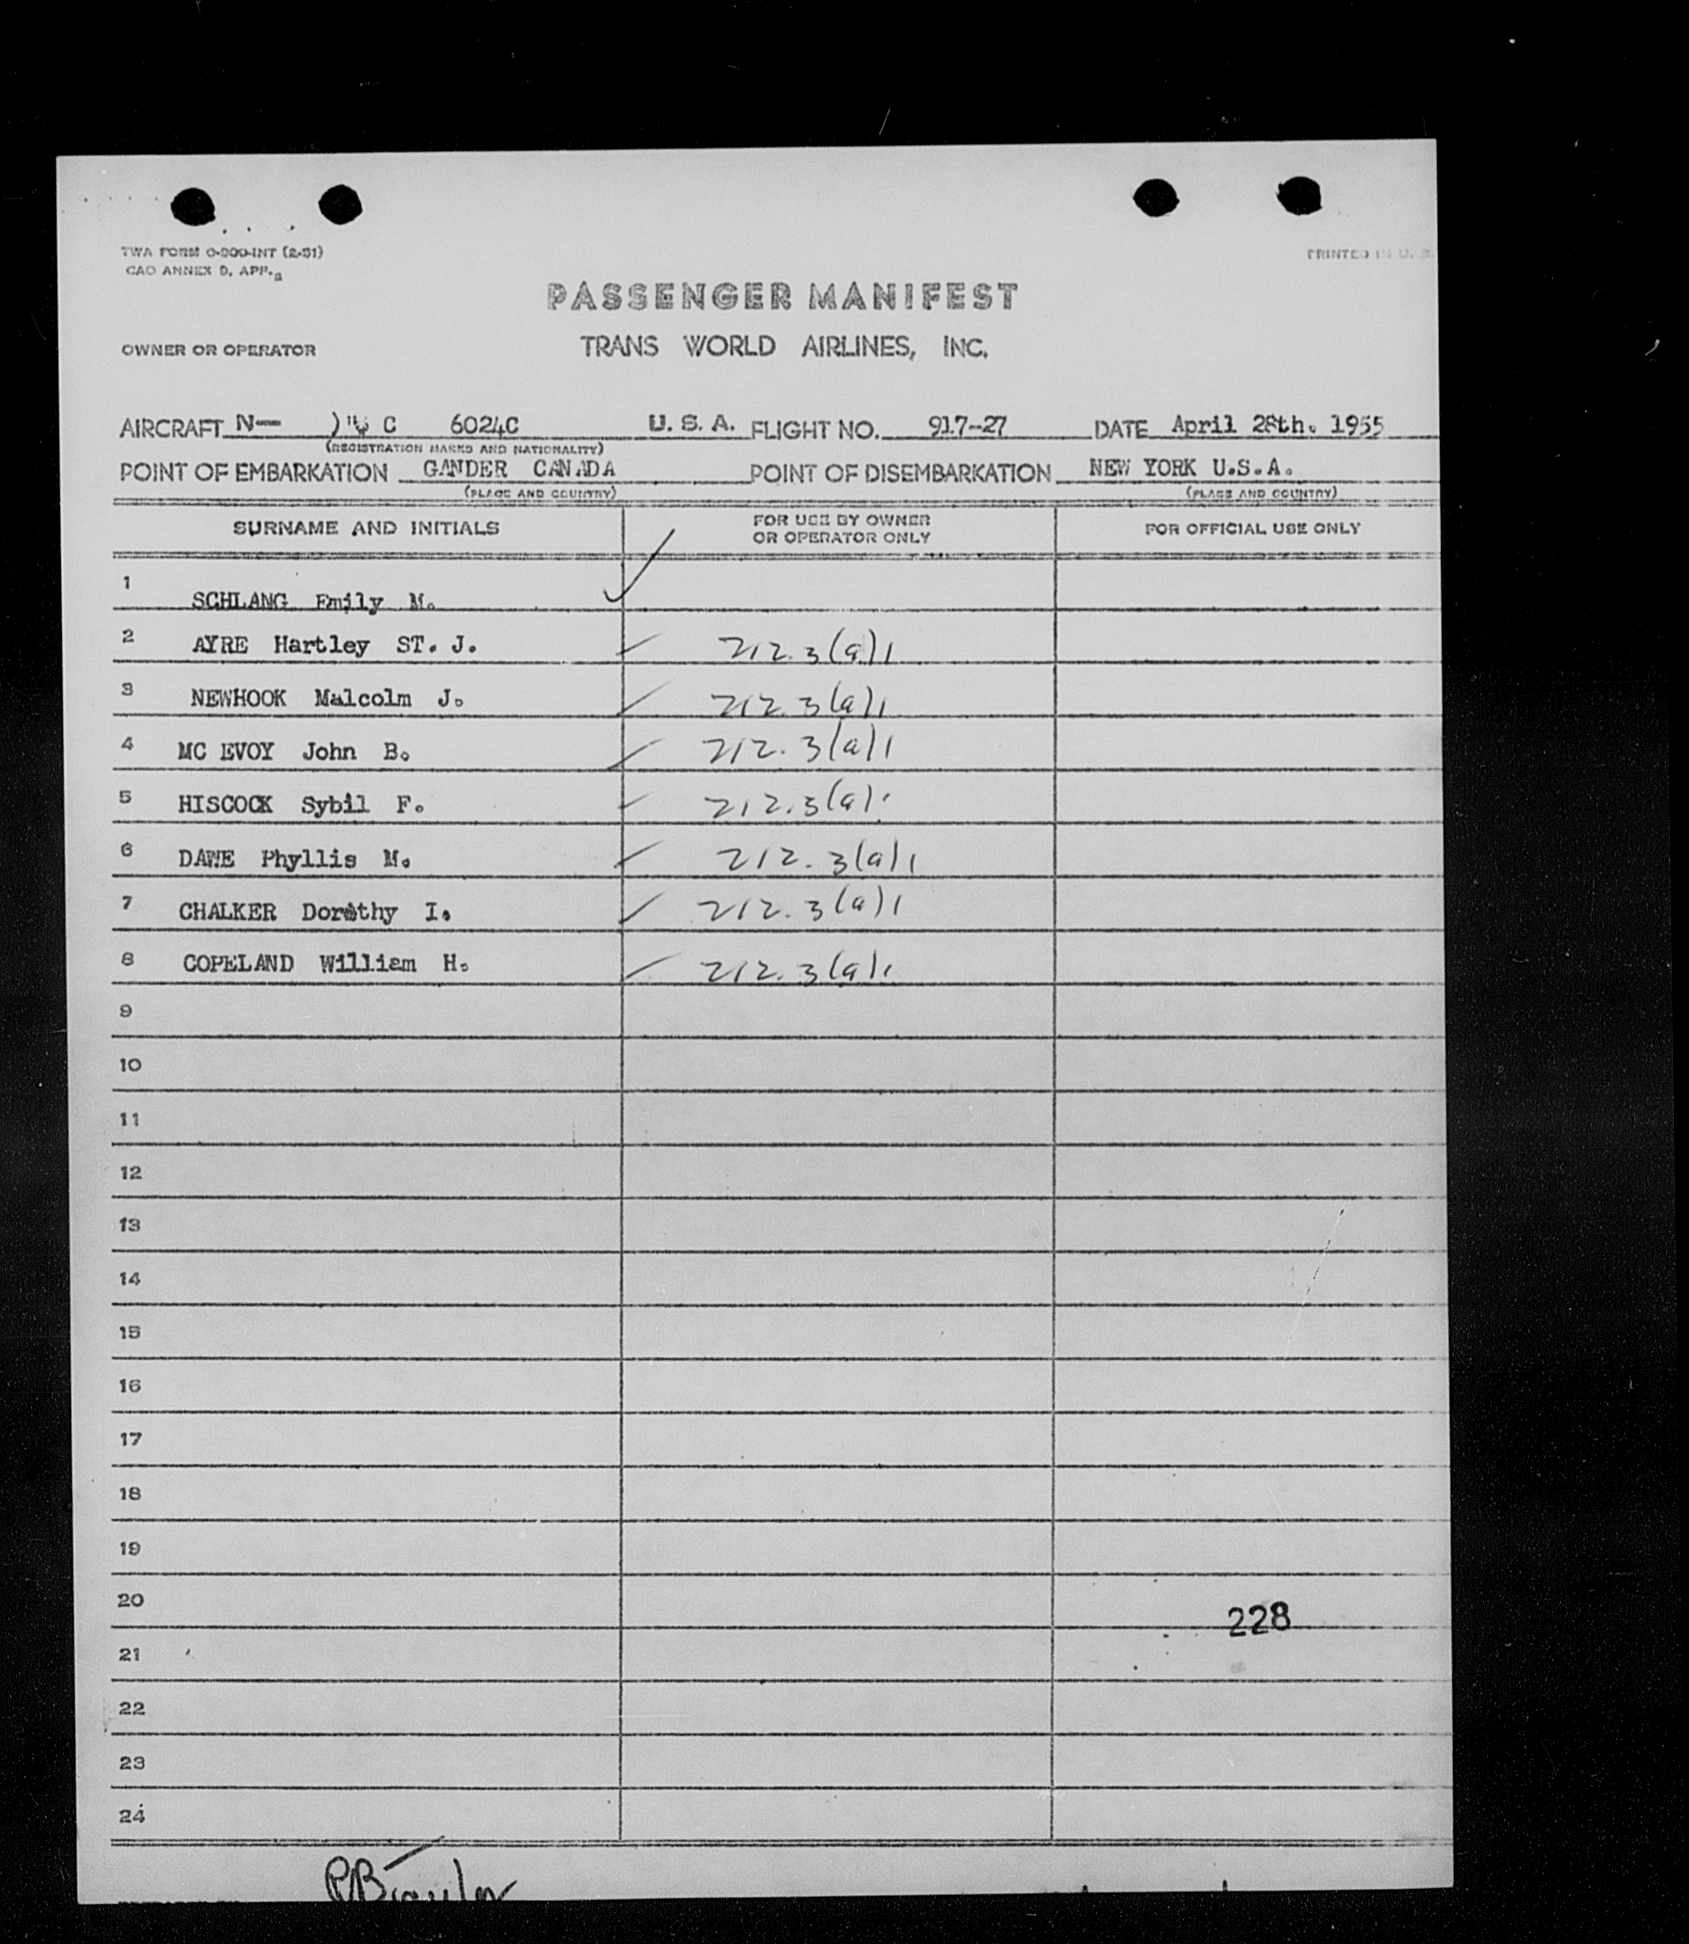 TWA FORM O-900-INT (2-51)
CAO ANNEX D, APP.
PRINTED IN U. S.
PASSENGER MANIFEST
OWNER OR OPERATOR TRANS WORLD AIRLINES, INC.
AIRCRAFT N— C 6024C U. S. A. FLIGHT NO. 917-27 DATE April 28th. 1955
(REGISTRATION MARKS AND NATIONALITY)
POINT OF EMBARKATION GANDER CANADA POINT OF DISEMBARKATION NEW YORK U.S.A.
(PLACE AND COUNTRY) (PLACE AND COUNTRY)
SURNAME AND INITIALS FOR USE BY OWNER OR OPERATOR ONLY FOR OFFICIAL USE ONLY
1 SCHLANG Emily M.
2 AYRE Hartley ST. J. 212.3(a)1
3 NEWHOOK Malcolm J. 212.3(a)1
4 MC EVOY John B. 212.3(a)1
5 HISCOCK Sybil F. 212.3(a)1
6 DAWE Phyllis M. 212.3(a)1
7 CHALKER Dorothy I. 212.3(a)1
8 COPELAND William H. 212.3(a)1
9
10
11
12
13
14
15
16
17
18
19
20
228
21
22
23
24